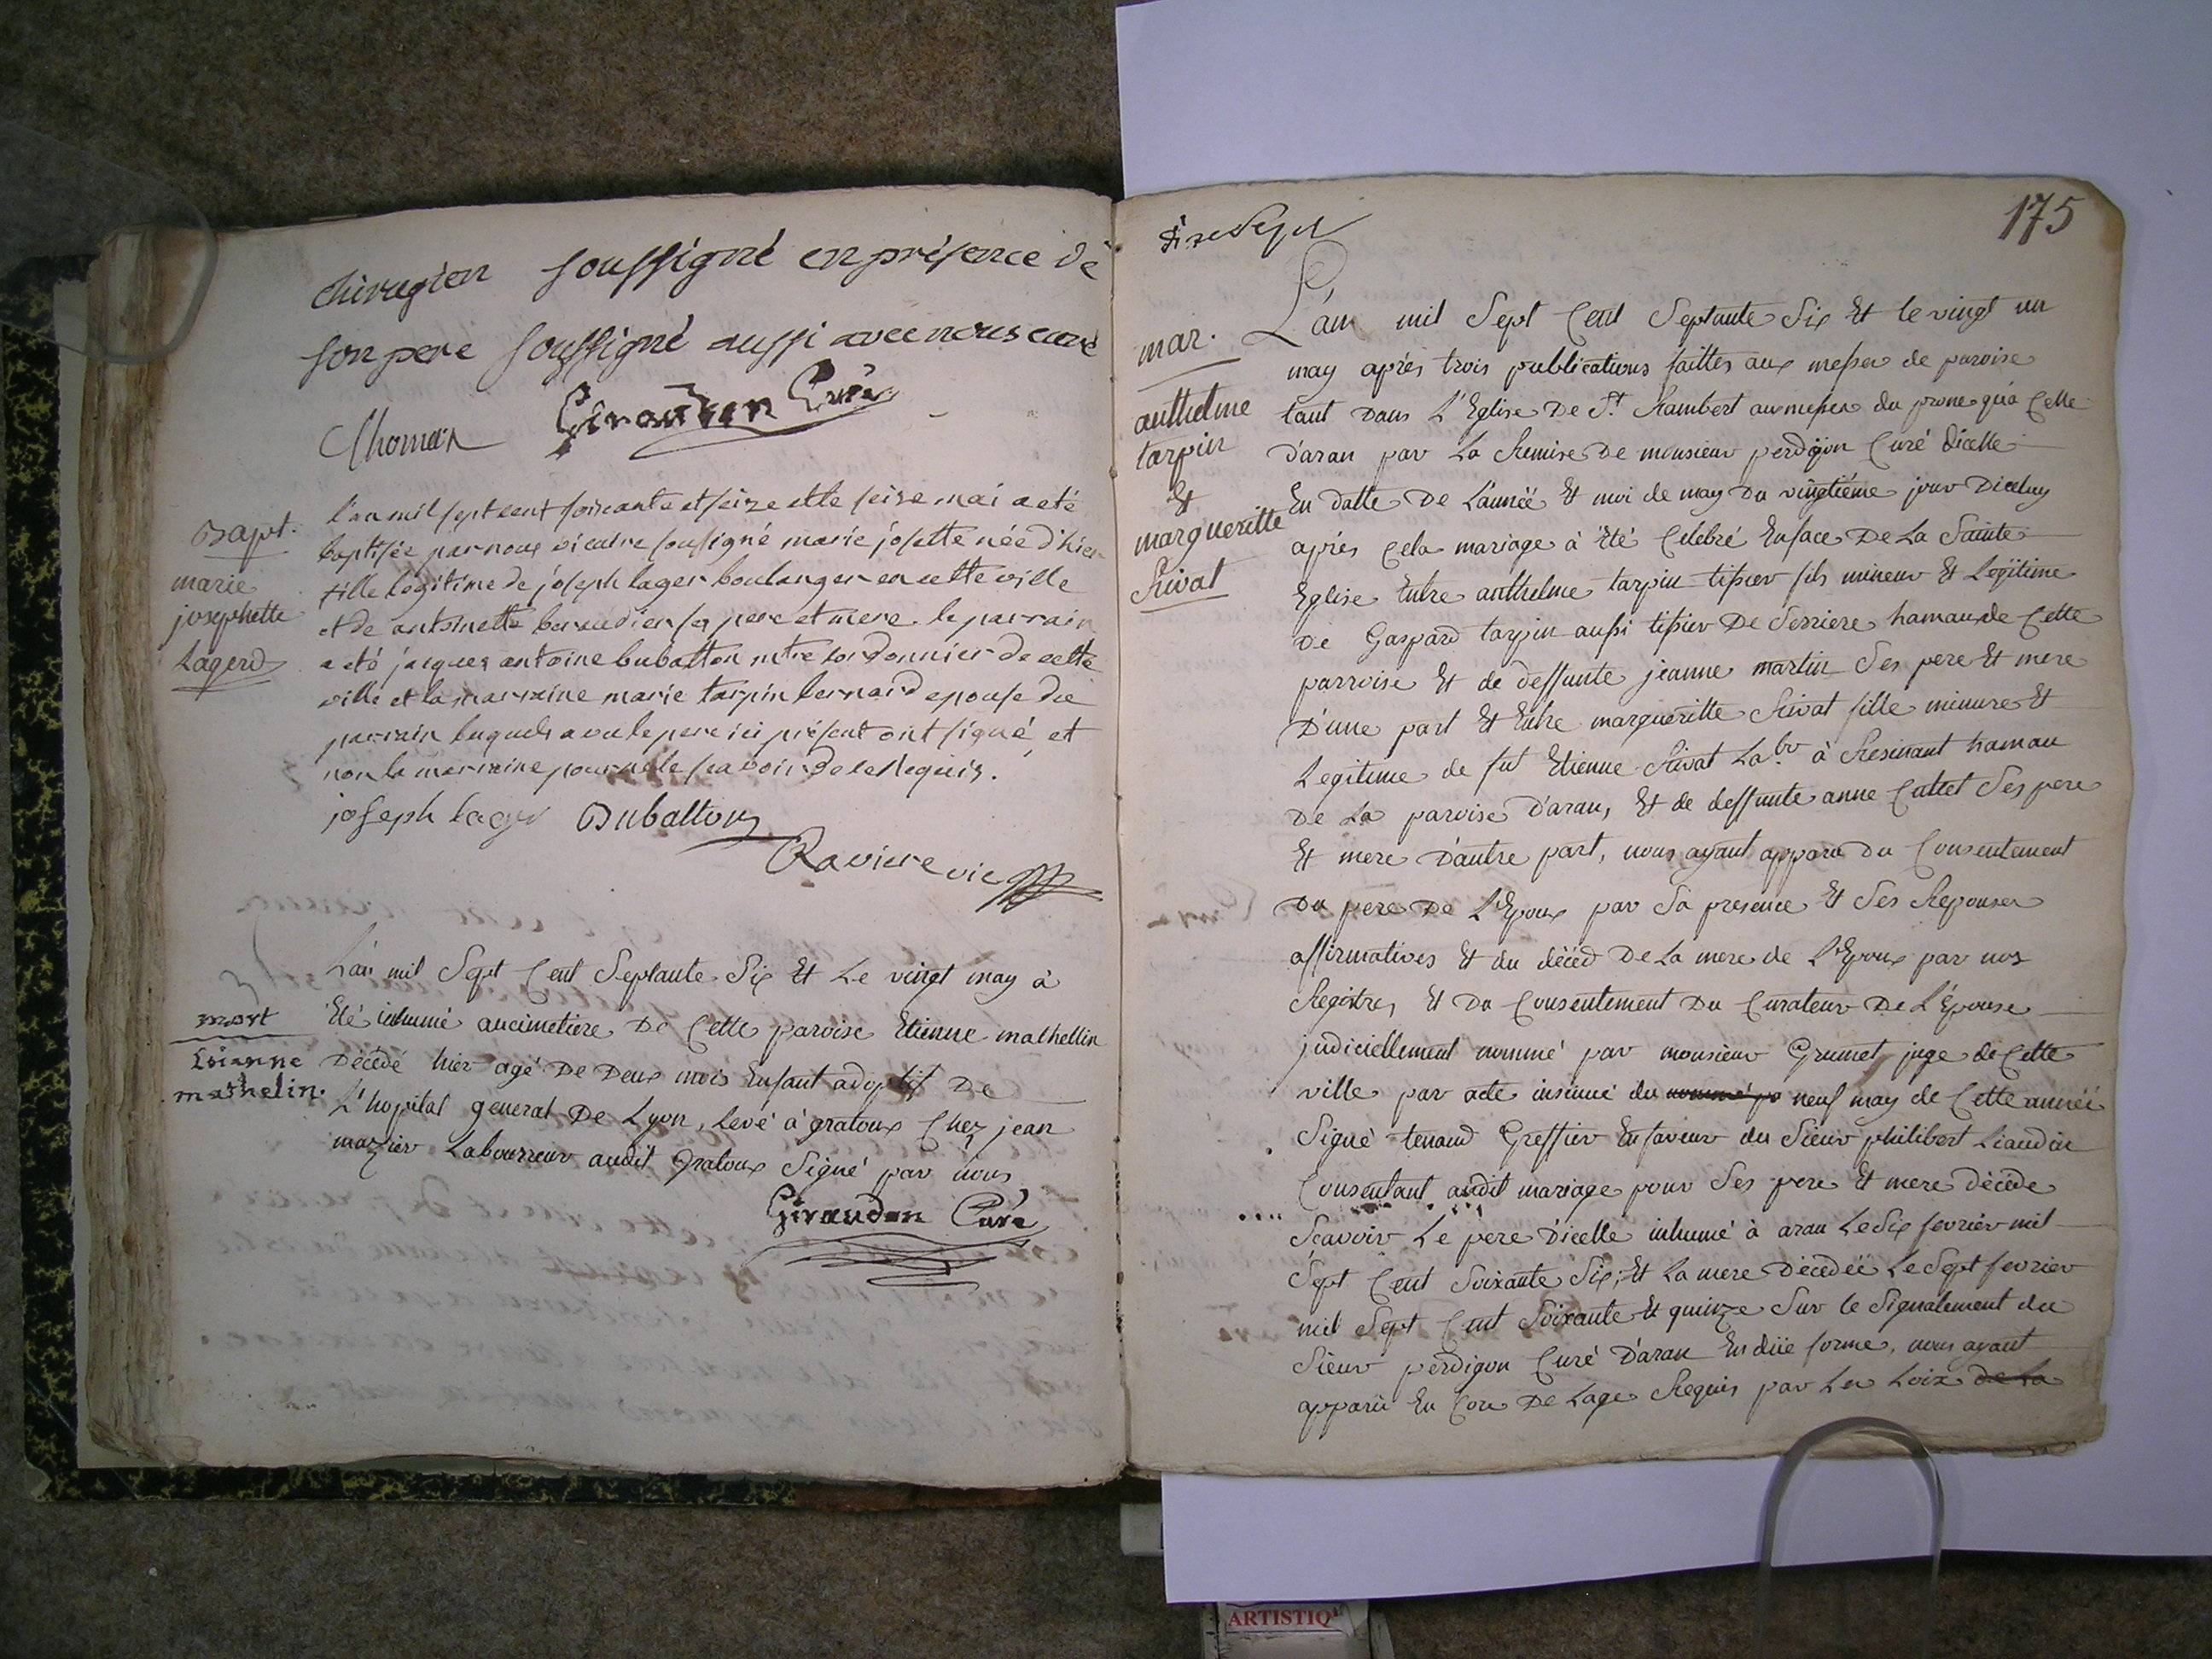 chirugien soussigné en présence de
son pere soussigné aussi avec nous curé
Thomas Giraudon Curé
Bapt.
marie
josephette
Lagerd
l'an mil sept cent soixante et seize et le seize mai a eté
baptisée par nous vicaire sousigné marie josette née d'hier
fille légitime de joseph lager boulanger en cette ville
et de antoinette ses pere et mere. le parrain
a eté jacques antoine bubatton mtre cordonnier de cette
ville et la marraine marie tarpin bernard epouse du
parrain lequels avec le pere ici présent ont signé, et
non la marraine pour ne le sçavoir de ce Requis.
joseph lager Dubatton
Raviere vic
mort
Etianne
mathelin.
L'an mil Sept Cent Septante Six Et Le vingt may à
Eté inhumé au cimetiere De Cette paroise Etienne mathellin
Décédé hier agé De Deux mois Enfant adoptif De
L'hopital general De Lyon, levé à gratoux Chez jean
mazier Laboureur audit gratoux Signé par nous
Giraudon Curé
175
mar.
anthelme
tarpin
Et
margueritte
Rivat
L'an mil Sept Cent Septante Six Et le vingt un
may après trois publications faittes aux messes de paroise
tant Dans L'Eglise De St. Rambert aux messes du prone qu'à Celle
D'aran par La Remise De monsieur perdigon Curé dicelle
En datte De L'année Et moi de may Du vingtiéme jour Diceluy
après Cela mariage à Eté Celebré En face De La Sainte
Eglise Entre anthelme tarpin tissier fils mineur Et Legitime
De Gaspard tarpin aussi tissier De Serriere hamau de Cette
parroise Et de deffunte jeanne martin Ses pere Et mere
D'une part Et Entre margueritte Rivat fille mineure Et
Legitime de fut Etienne Rivat Labr. à Resinant hamau
De La paroise D'aran, Et de deffunte anne Cattet Ses pere
Et mere D'autre part, nous ayant apparu Du Consentement
Du pere De L'Epoux par Sa presence Et Ses Reponses
affirmatives Et du décéd De La mere de L'Epoux par nos
Registres Et Du Consentement Du Curateur De L'Épouse
judiciellement nommé par monsieur Grumet juge de Cette
ville par acte insinué du nommé pa neuf may de Cette année
Signé tenand Greffier En faveur du Sieur philibert Liaudin
Consentant audit mariage pour Ses pere Et mere décédé
Scavoir Le pere D'icelle inhumé à aran Le Six fevrier mil
Sept Cent Soixante Six; Et La mere Décédée Le Sept fevrier
mil Sept Cent Soixante Et quinze Sur le Signalement du
Sieur perdigon Curé D'aran En düe forme, nous ayant
apparu En Core De Lage Requis par Les Loix de La
ARTISTIQ